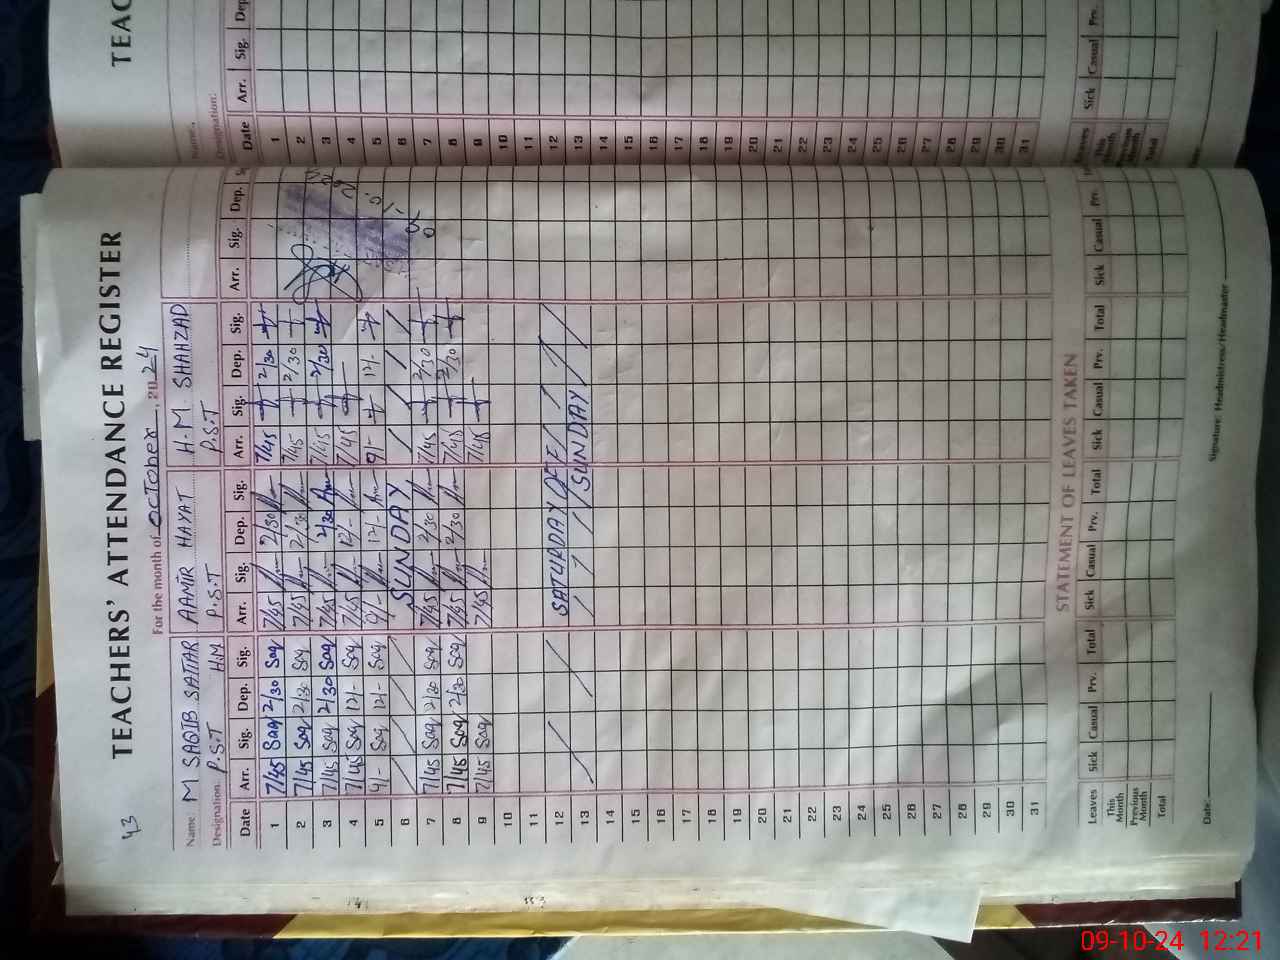 43
TEACHERS' ATTENDANCE REGISTER
For the month of October, 2024
Name: M SAQIB SATTAR AAMIR HAYAT H.M. SHAHZAD
Designation. P.S.T H.M. P.S.T P.S.T
Date Arr. Sig. Dep. Sig. Arr. Sig. Dep. Sig. Arr. Sig. Dep. Sig. Arr. Sig. Dep.
1 7/45 Saq 2/30 Saq 7/45 2/30 7/45 2/30
2 7/45 Saq 2/30 Saq 7/45 2/30 7/45 2/30
3 7/45 Saq 2/30 Saq 7/45 2/30 7/45 2/30
4 7/45 Saq 12/- Saq 7/45 12/- 7/45
5 9/- Saq 12/- Saq 9/- 12/- 9/- 12/-
6 SUNDAY
7 7/45 Saq 2/30 Saq 7/45 2/30 7/45 2/30
8 7/45 Saq 2/30 Saq 7/45 2/30 7/45 2/30
9 7/45 Saq 7/45 7/45
10
11
12 SATURDAY OFF
13 SUNDAY
14
15
16
17
18
19
20
21
22
23
24
25
26
27
28
29
30
31
STATEMENT OF LEAVES TAKEN
Leaves Sick Casual Prv. Total Sick Casual Prv. Total Sick Casual Prv. Total Sick Casual Prv.
This Month
Previous Month
Total
Date: Signature: Headmistress/Headmaster
TEAC
Name:
Designation:
Date Arr. Sig. Dep
1
2
3
4
5
6
7
8
9
10
11
12
13
14
15
16
17
18
19
20
21
22
23
24
25
26
27
28
29
30
31
Leaves Sick Casual Prv.
This Month
Previous Month
Total
09-10-24 12:21